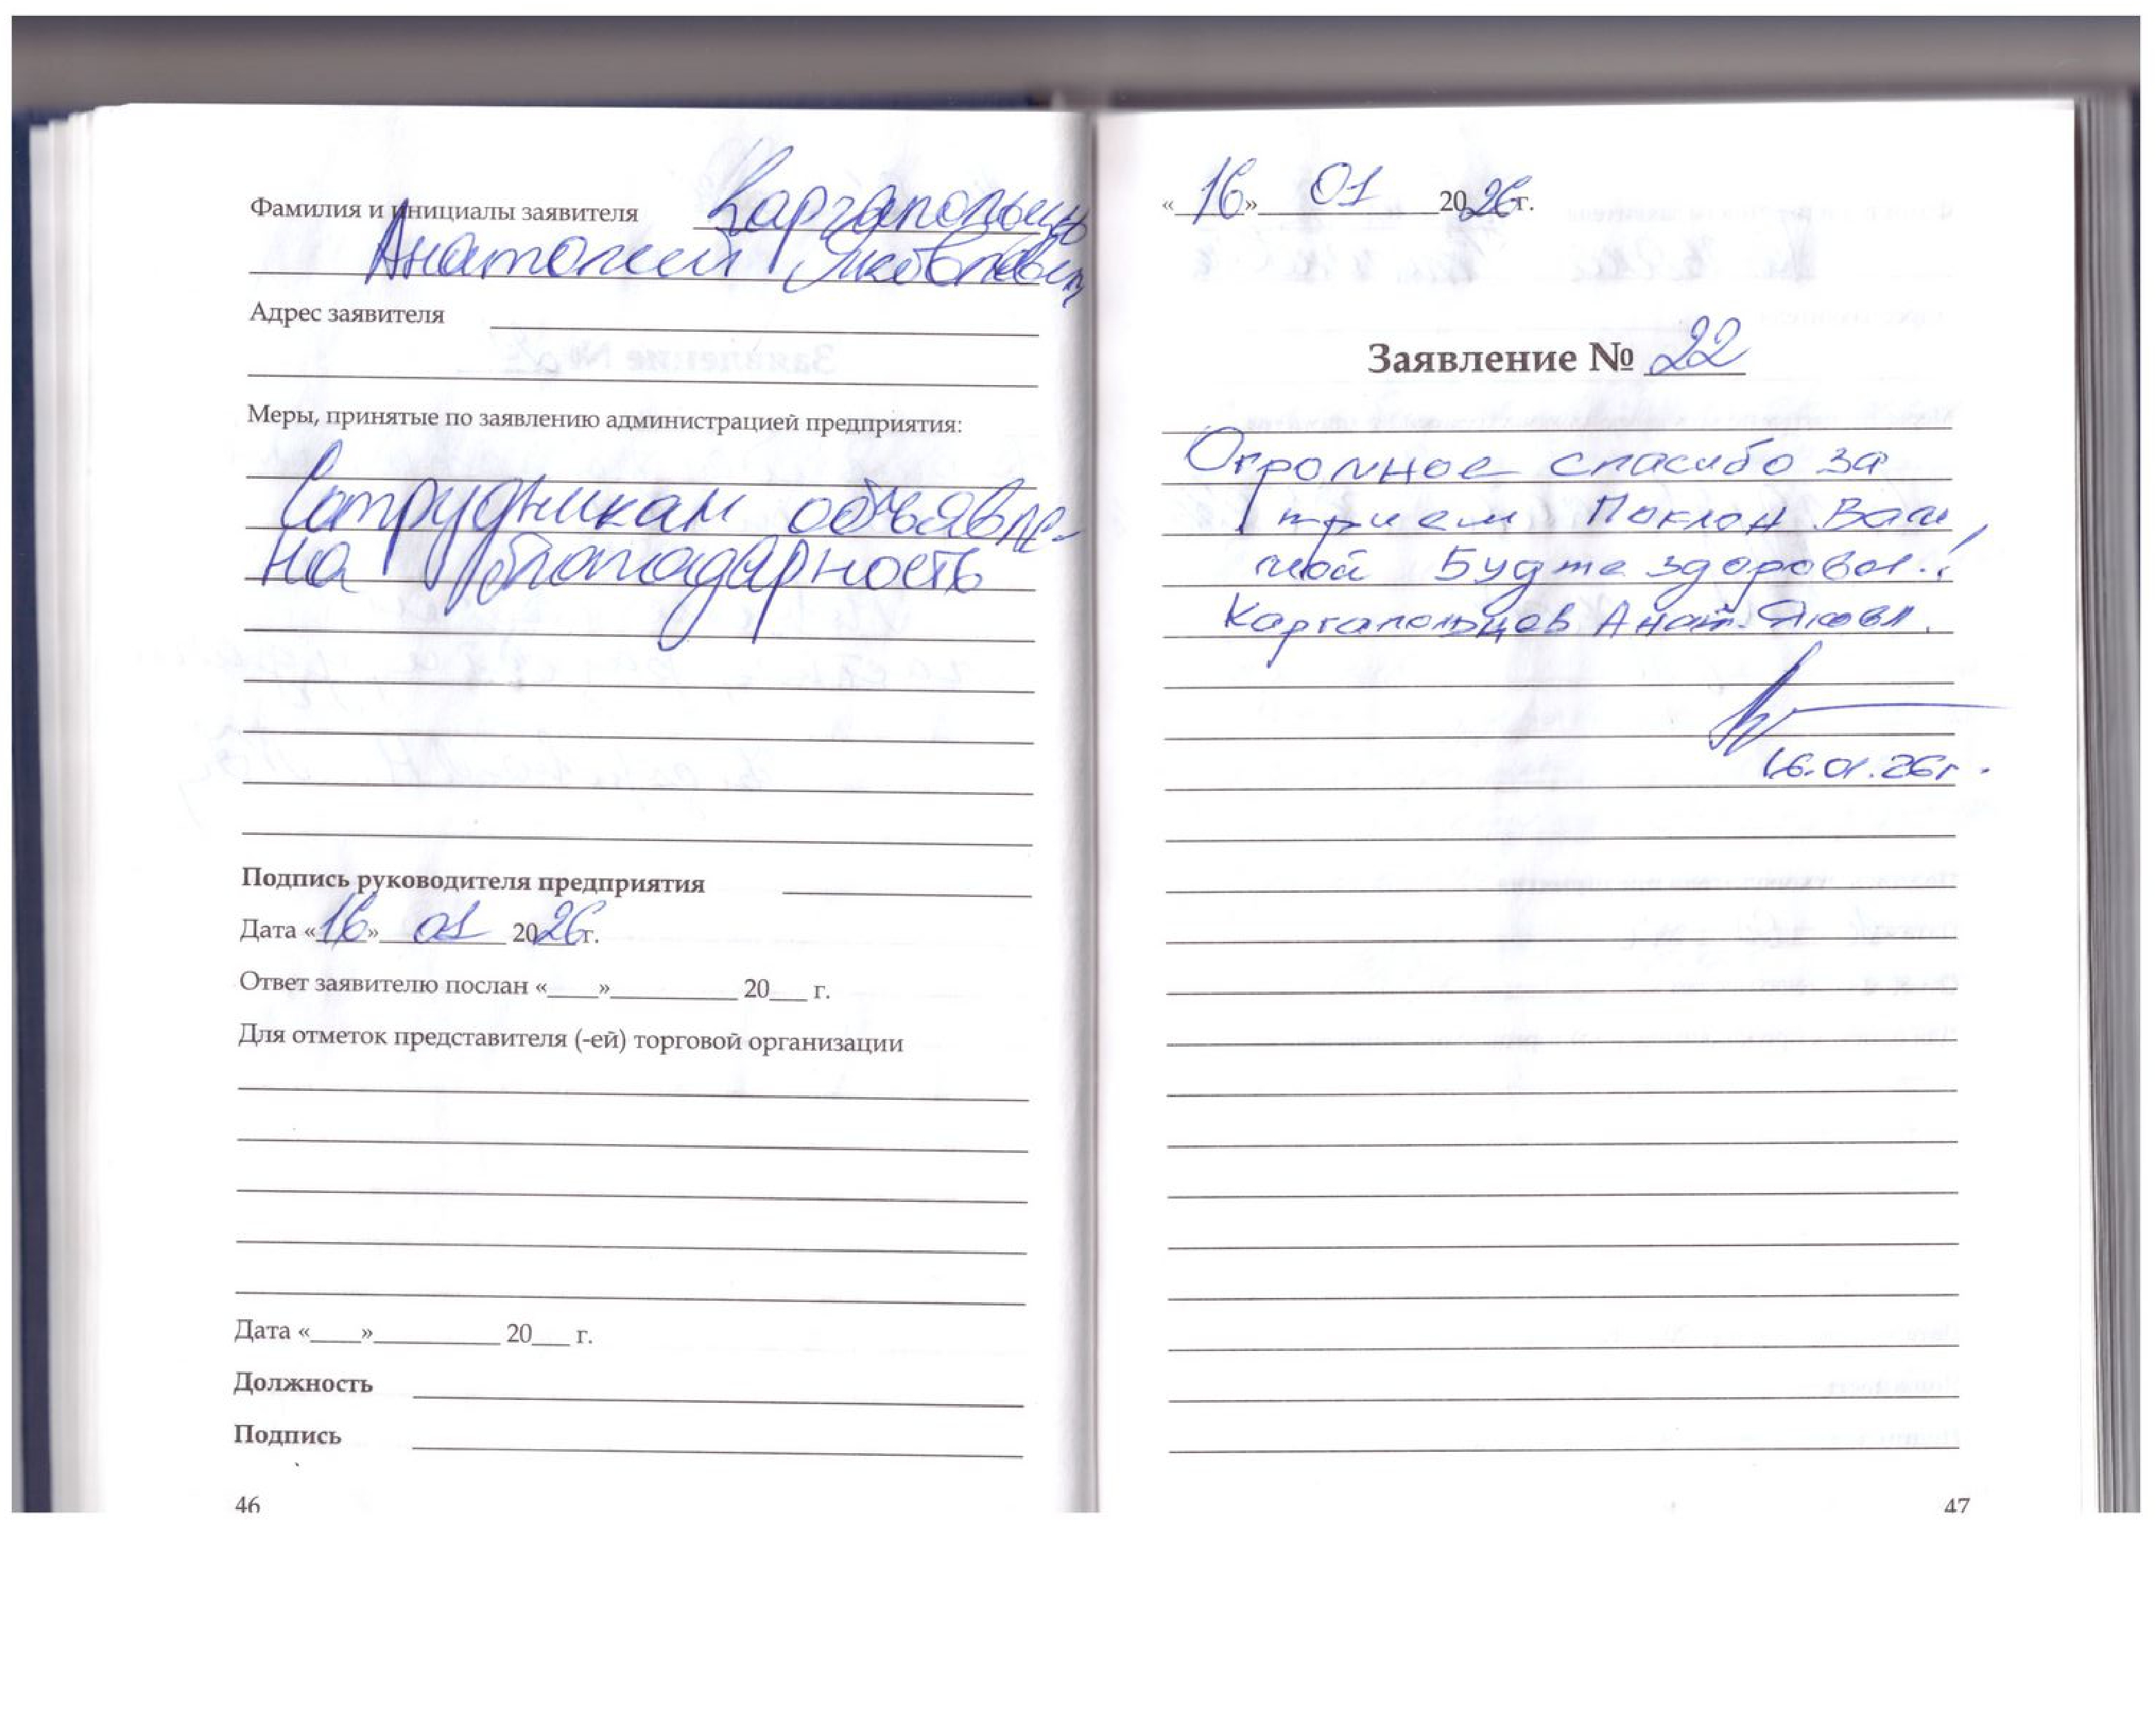 Фамилия и инициалы заявителя Каргапольцев
Анатолий Яковлевич
Адрес заявителя
Меры, принятые по заявлению администрацией предприятия:
Сотрудникам объявле-
на благодарность
Подпись руководителя предприятия
Дата «16» 01 2026г.
Ответ заявителю послан «____»__________ 20___ г.
Для отметок представителя (-ей) торговой организации
Дата «____»__________ 20___ г.
Должность
Подпись
46
«16» 01 2026г.
Заявление № 22
Огромное спасибо за
прием Поклон Вам
мой Будте здоровы!
Каргапольцов Анат. Яковл.
16.01.26г.
47